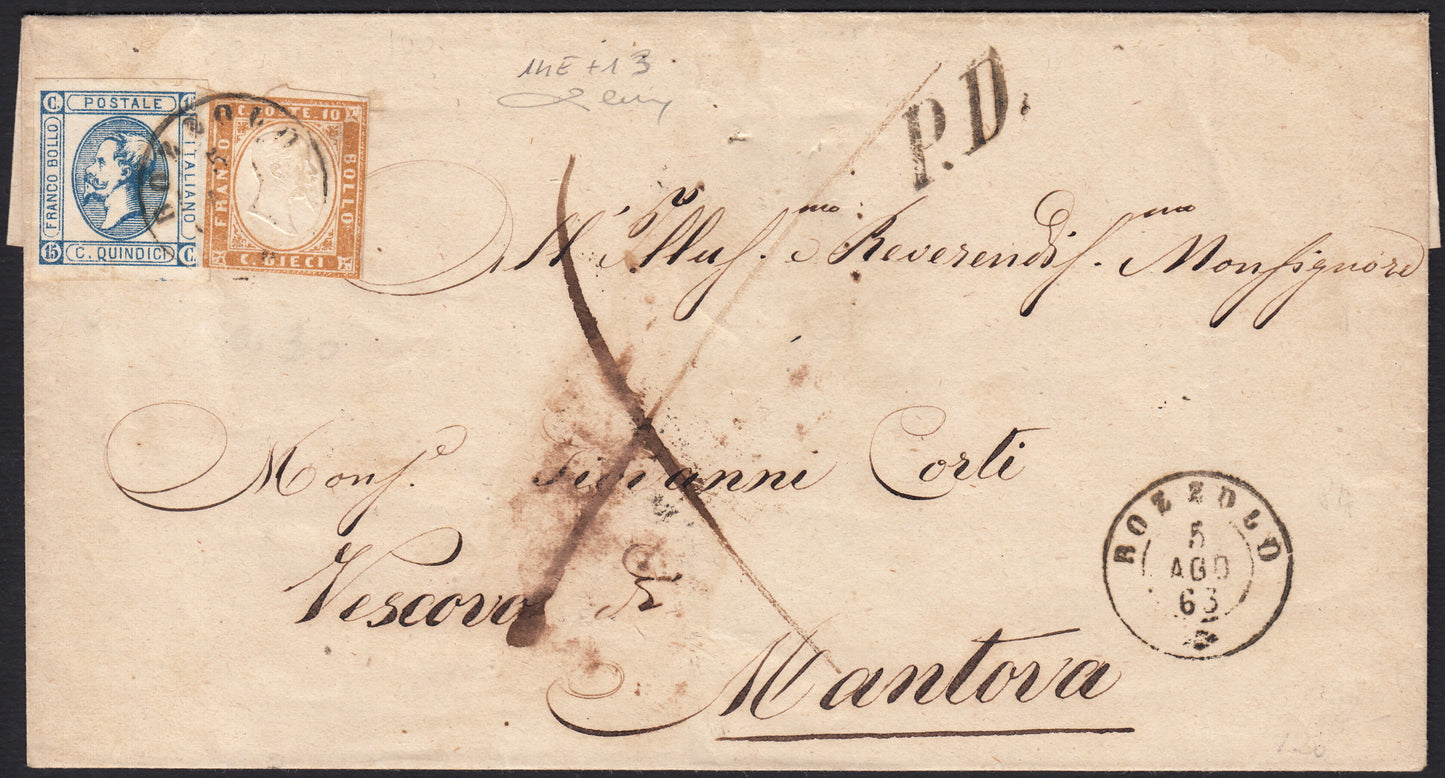 14E+13
P.D.
C. POSTALE 15
FRANCO BOLLO
ITALIANO
15 C. QUINDICI C.
C. POSTE 10
FRANCO
BOLLO
C. DIECI
BOZZOLO
5
All' Illus.mo e Reverendis.mo Monsignore
Mons.e Giovanni Corti
Vescovo di
Mantova
BOZZOLO
5
AGO
63